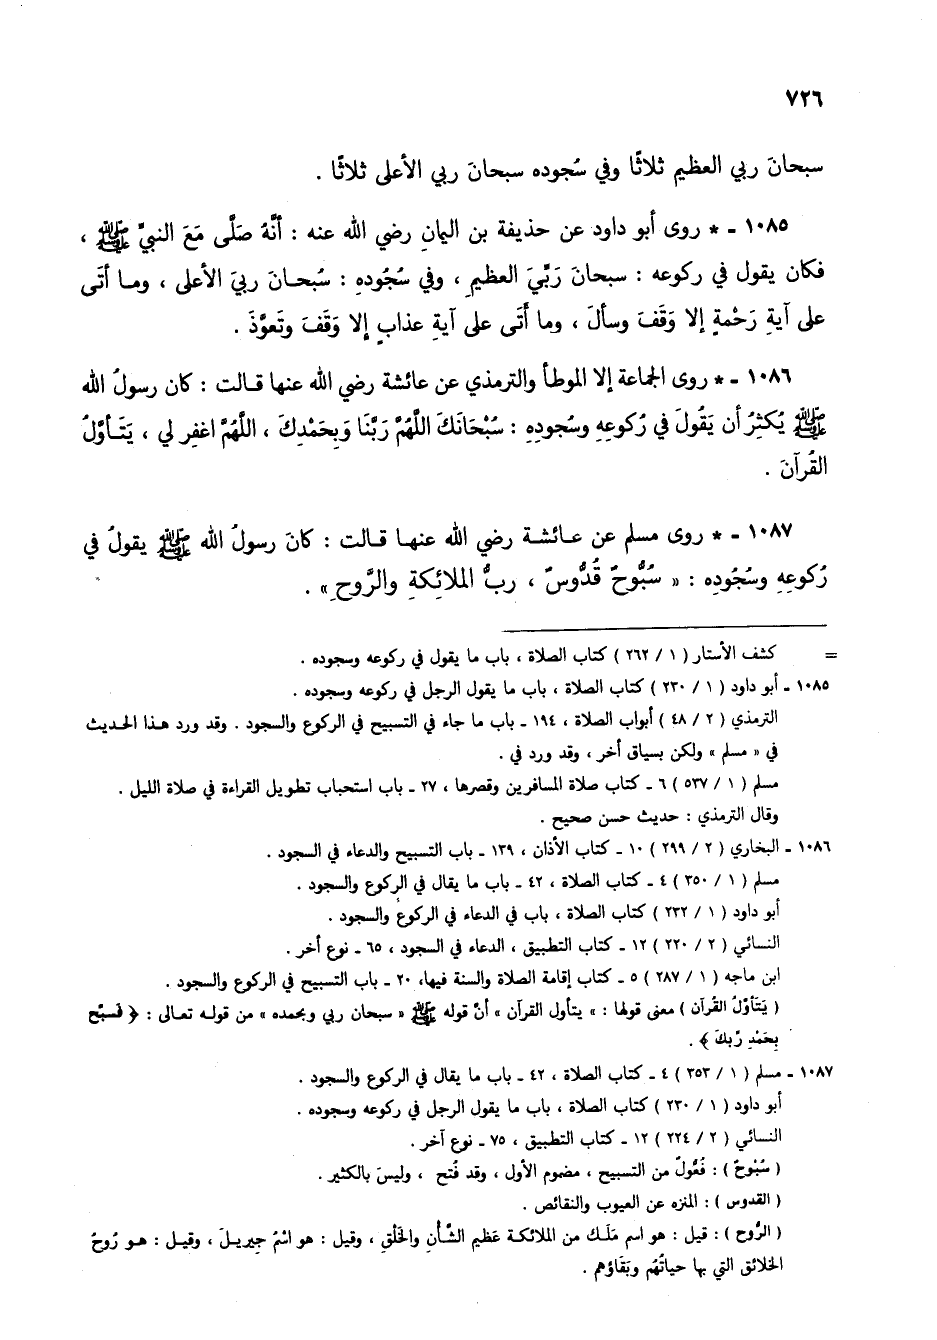 ٧٢٦
سبحانَ ربي العظيم ثلاثًا وفي سُجوده سبحانَ ربي الأعلى ثلاثًا .
١٠٨٥ ـ * روى أبو داود عن حذيفة بن اليمانِ رضي الله عنه : أنَّهُ صَلَّى مَعَ النبيِّ ﷺ ،
فكان يقول في ركوعه : سبحانَ رَبِّيَ العظيمِ ، وفي سُجُودِهِ : سُبْحـانَ ربيَ الأعلى ، ومـا أتَى
على آيةِ رَحْمةٍ إلا وَقَفَ وسألَ ، وما أَتَى على آيةِ عذابٍ إلا وَقَفَ وتَعوَّذَ .
١٠٨٦ ـ * روى الجماعة إلا الموطأ والترمذي عن عائشة رضي الله عنها قـالت : كان رسولُ الله
ﷺ يُكثِرُ أن يَقُولَ في رُكوعِهِ وسُجودِهِ : سُبْحَانَكَ اللَّهُمَّ رَبَّنَا وَبِحَمْدِكَ ، اللَّهُمَّ اغفِر لي ، يَتَـأوَّلُ
القُرآنَ .
١٠٨٧ ـ * روى مسلم عن عـائشـة رضي الله عنهـا قـالت : كانَ رسولُ الله ﷺ يقولُ في
رُكوعِهِ وسُجُودِهِ : « سُبُّوحٌ قُدُّوسٌ ، ربُّ الملائِكةِ والرَّوحِ » .
= كشف الأستار ( ١ / ٢٦٢ ) كتاب الصلاة ، باب ما يقول في ركوعه وسجوده .
١٠٨٥ ـ أبو داود ( ١ / ٢٣٠ ) كتاب الصلاة ، باب ما يقول الرجل في ركوعه وسجوده .
الترمذي ( ٢ / ٤٨ ) أبواب الصلاة ، ١٩٤ ـ باب ما جاء في التسبيح في الركوع والسجود . وقد ورد هـذا الحديث
في « مسلم » ولكن بسياق أخر ، وقد ورد في .
مسلم ( ١ / ٥٣٧ ) ٦ ـ كتاب صلاة المسافرين وقصرها ، ٢٧ ـ باب استحباب تطويل القراءة في صلاة الليل .
وقال الترمذي : حديث حسن صحيح .
١٠٨٦ ـ البخاري ( ٢ / ٢٩٩ ) ١٠ ـ كتاب الأذان ، ١٣٩ ـ باب التسبيح والدعاء في السجود .
مسلم ( ١ / ٣٥٠ ) ٤ ـ كتاب الصلاة ، ٤٢ ـ باب ما يقال في الركوع والسجود .
أبو داود ( ١ / ٢٣٢ ) كتاب الصلاة ، باب في الدعاء في الركوع والسجود .
النسائي ( ٢ / ٢٢٠ ) ١٢ ـ كتاب التطبيق ، الدعاء في السجود ، ٦٥ ـ نوع أخر .
ابن ماجه ( ١ / ٢٨٧ ) ٥ ـ كتاب إقامة الصلاة والسنة فيها، ٢٠ ـ باب التسبيح في الركوع والسجود .
( يَتَأوَّلُ القُرآن ) معنى قولها : « يتأول القرآن » أنَّ قوله ﷺ « سبحان ربي وبحمده » من قولـه تعـالى : ﴿ فَسبِّح
بِحَمْدِ رَبِّكَ ﴾ .
١٠٨٧ ـ مسلم ( ١ / ٣٥٣ ) ٤ ـ كتاب الصلاة ، ٤٢ ـ باب ما يقال في الركوع والسجود .
أبو داود ( ١ / ٢٣٠ ) كتاب الصلاة ، باب ما يقول الرجل في ركوعه وسجوده .
النسائي ( ٢ / ٢٢٤ ) ١٢ ـ كتاب التطبيق ، ٧٥ ـ نوع آخر .
( سُبّوحٌ ) : فُعُّولٌ من التسبيح ، مضموم الأول ، وقد فُتح ، وليسَ بالكثير .
( القدوس ) : المنزه عن العيوب والنقائص .
( الرُّوح ) : قيل : هو اسم مَلَـك من الملائكـة عَظيم الشَّـأنِ والخَلْقِ ، وقيل : هو اسْمُ جِبريـلَ ، وقيـل : هـو رُوحُ
الخلائق التي بها حياتُهُم وبَقَاؤهم .